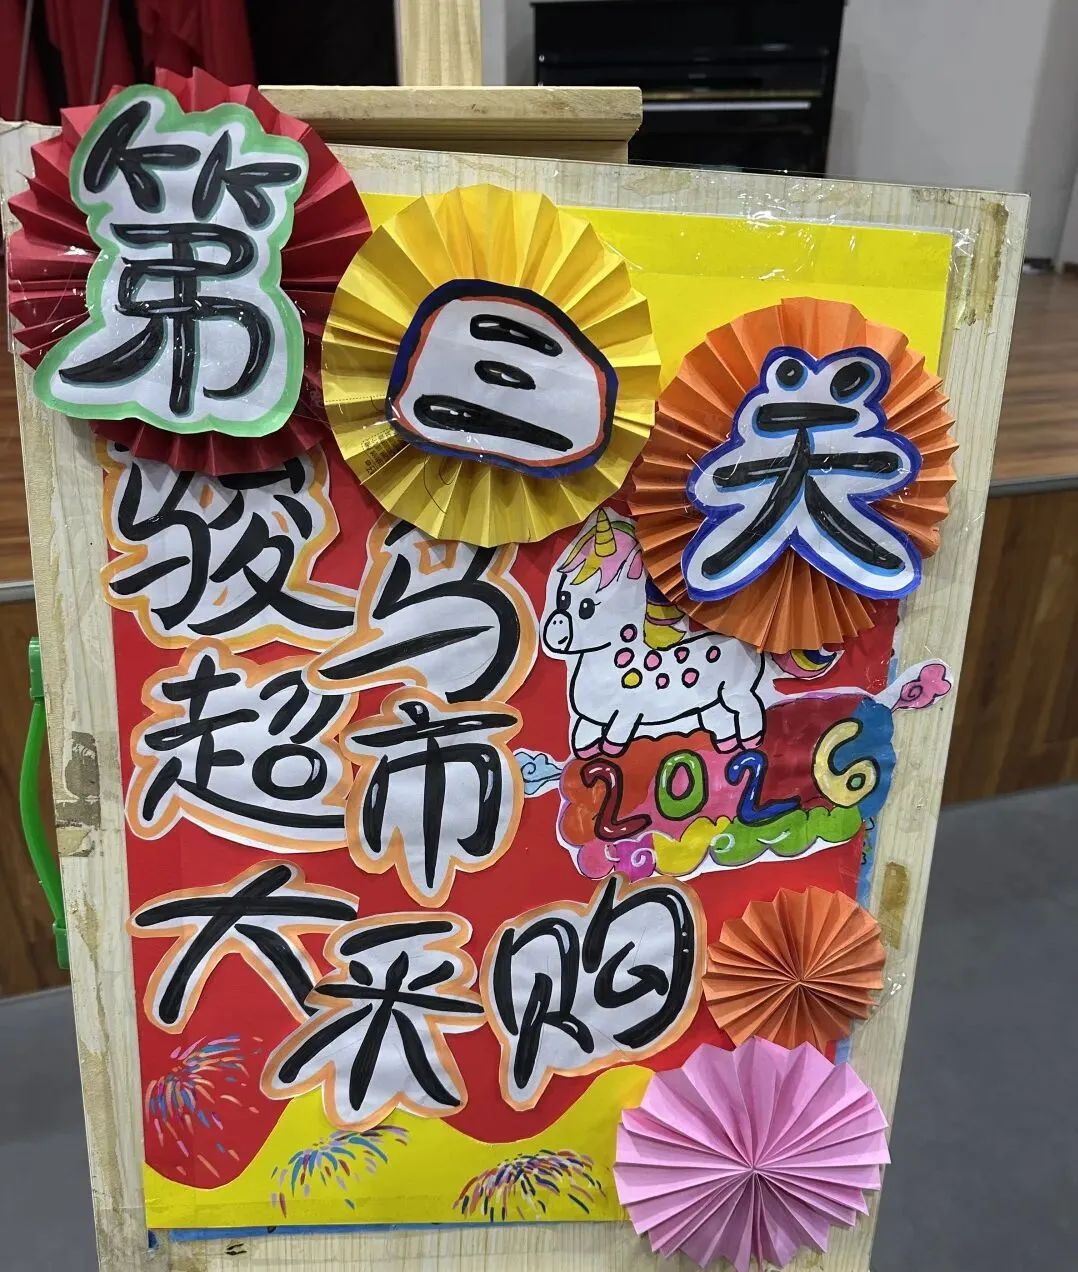 第三关
骏马
超市
2026
大采购